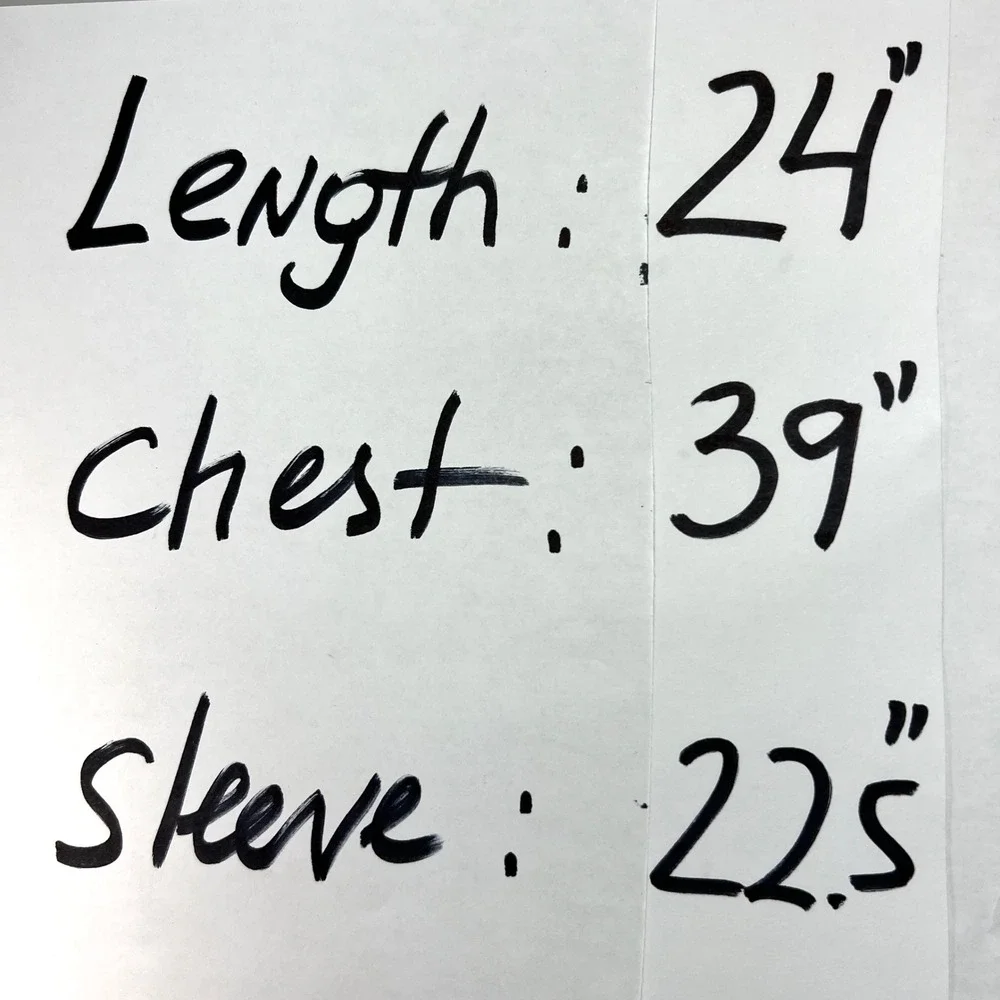 Length : 24"
Chest : 39"
Sleeve : 22.5"